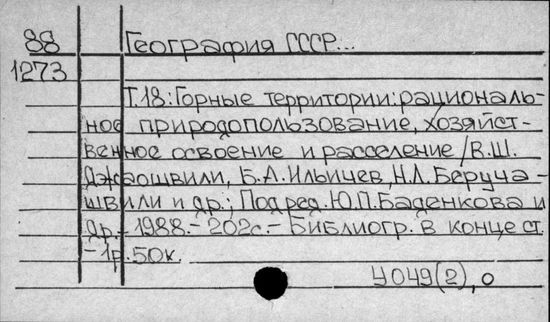 88 География СССР...
1273
Т.18: Горные территории: рациональ-
ное природопользование, хозяйст-
венное освоение и расселение / В.Ш.
Джаошвили, Б.А. Ильичев, Н.Л. Беруча-
швили и др.; Под ред. Ю.П. Баденкова и
др. - 1988. - 202с. - Библиогр. в конце ст.
- 1р.50к.
У049(2), о